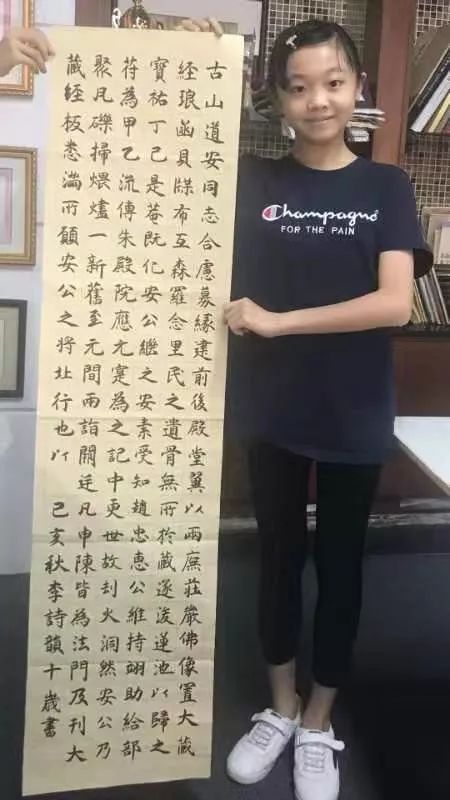 古山道安同志合慮募緣建前後殿堂翼以兩廡莊嚴佛像置大藏
經琅函貝牒布互森羅念里民之遺骨無所於藏遂浚蓮池以歸之
寶祐丁己是菴既化安公繼之安素受知趙忠惠公維持翊助給部
符為甲乙流傳朱殿院應元寔為之記中更世故刦火洞然安公乃
聚瓦礫掃煨燼一新舊至元間兩詣闕廷凡申陳皆為法門及刊大
藏經板悉滿所願安公之將北行也以 己亥秋李詩韻十歲書
Champagne
FOR THE PAIN